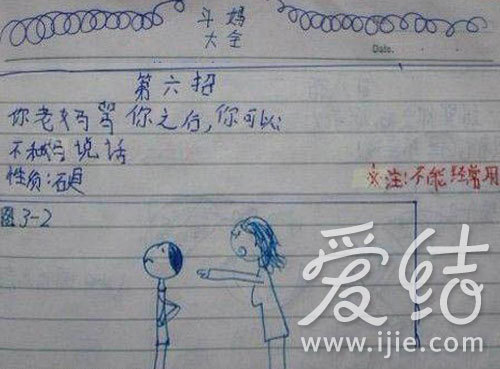 斗妈
大全
Date.
第六招
你老妈骂你之后,你可以
不和妈说话
性质:
※注:不能经常用
图3-2
爱结
www.ijie.com